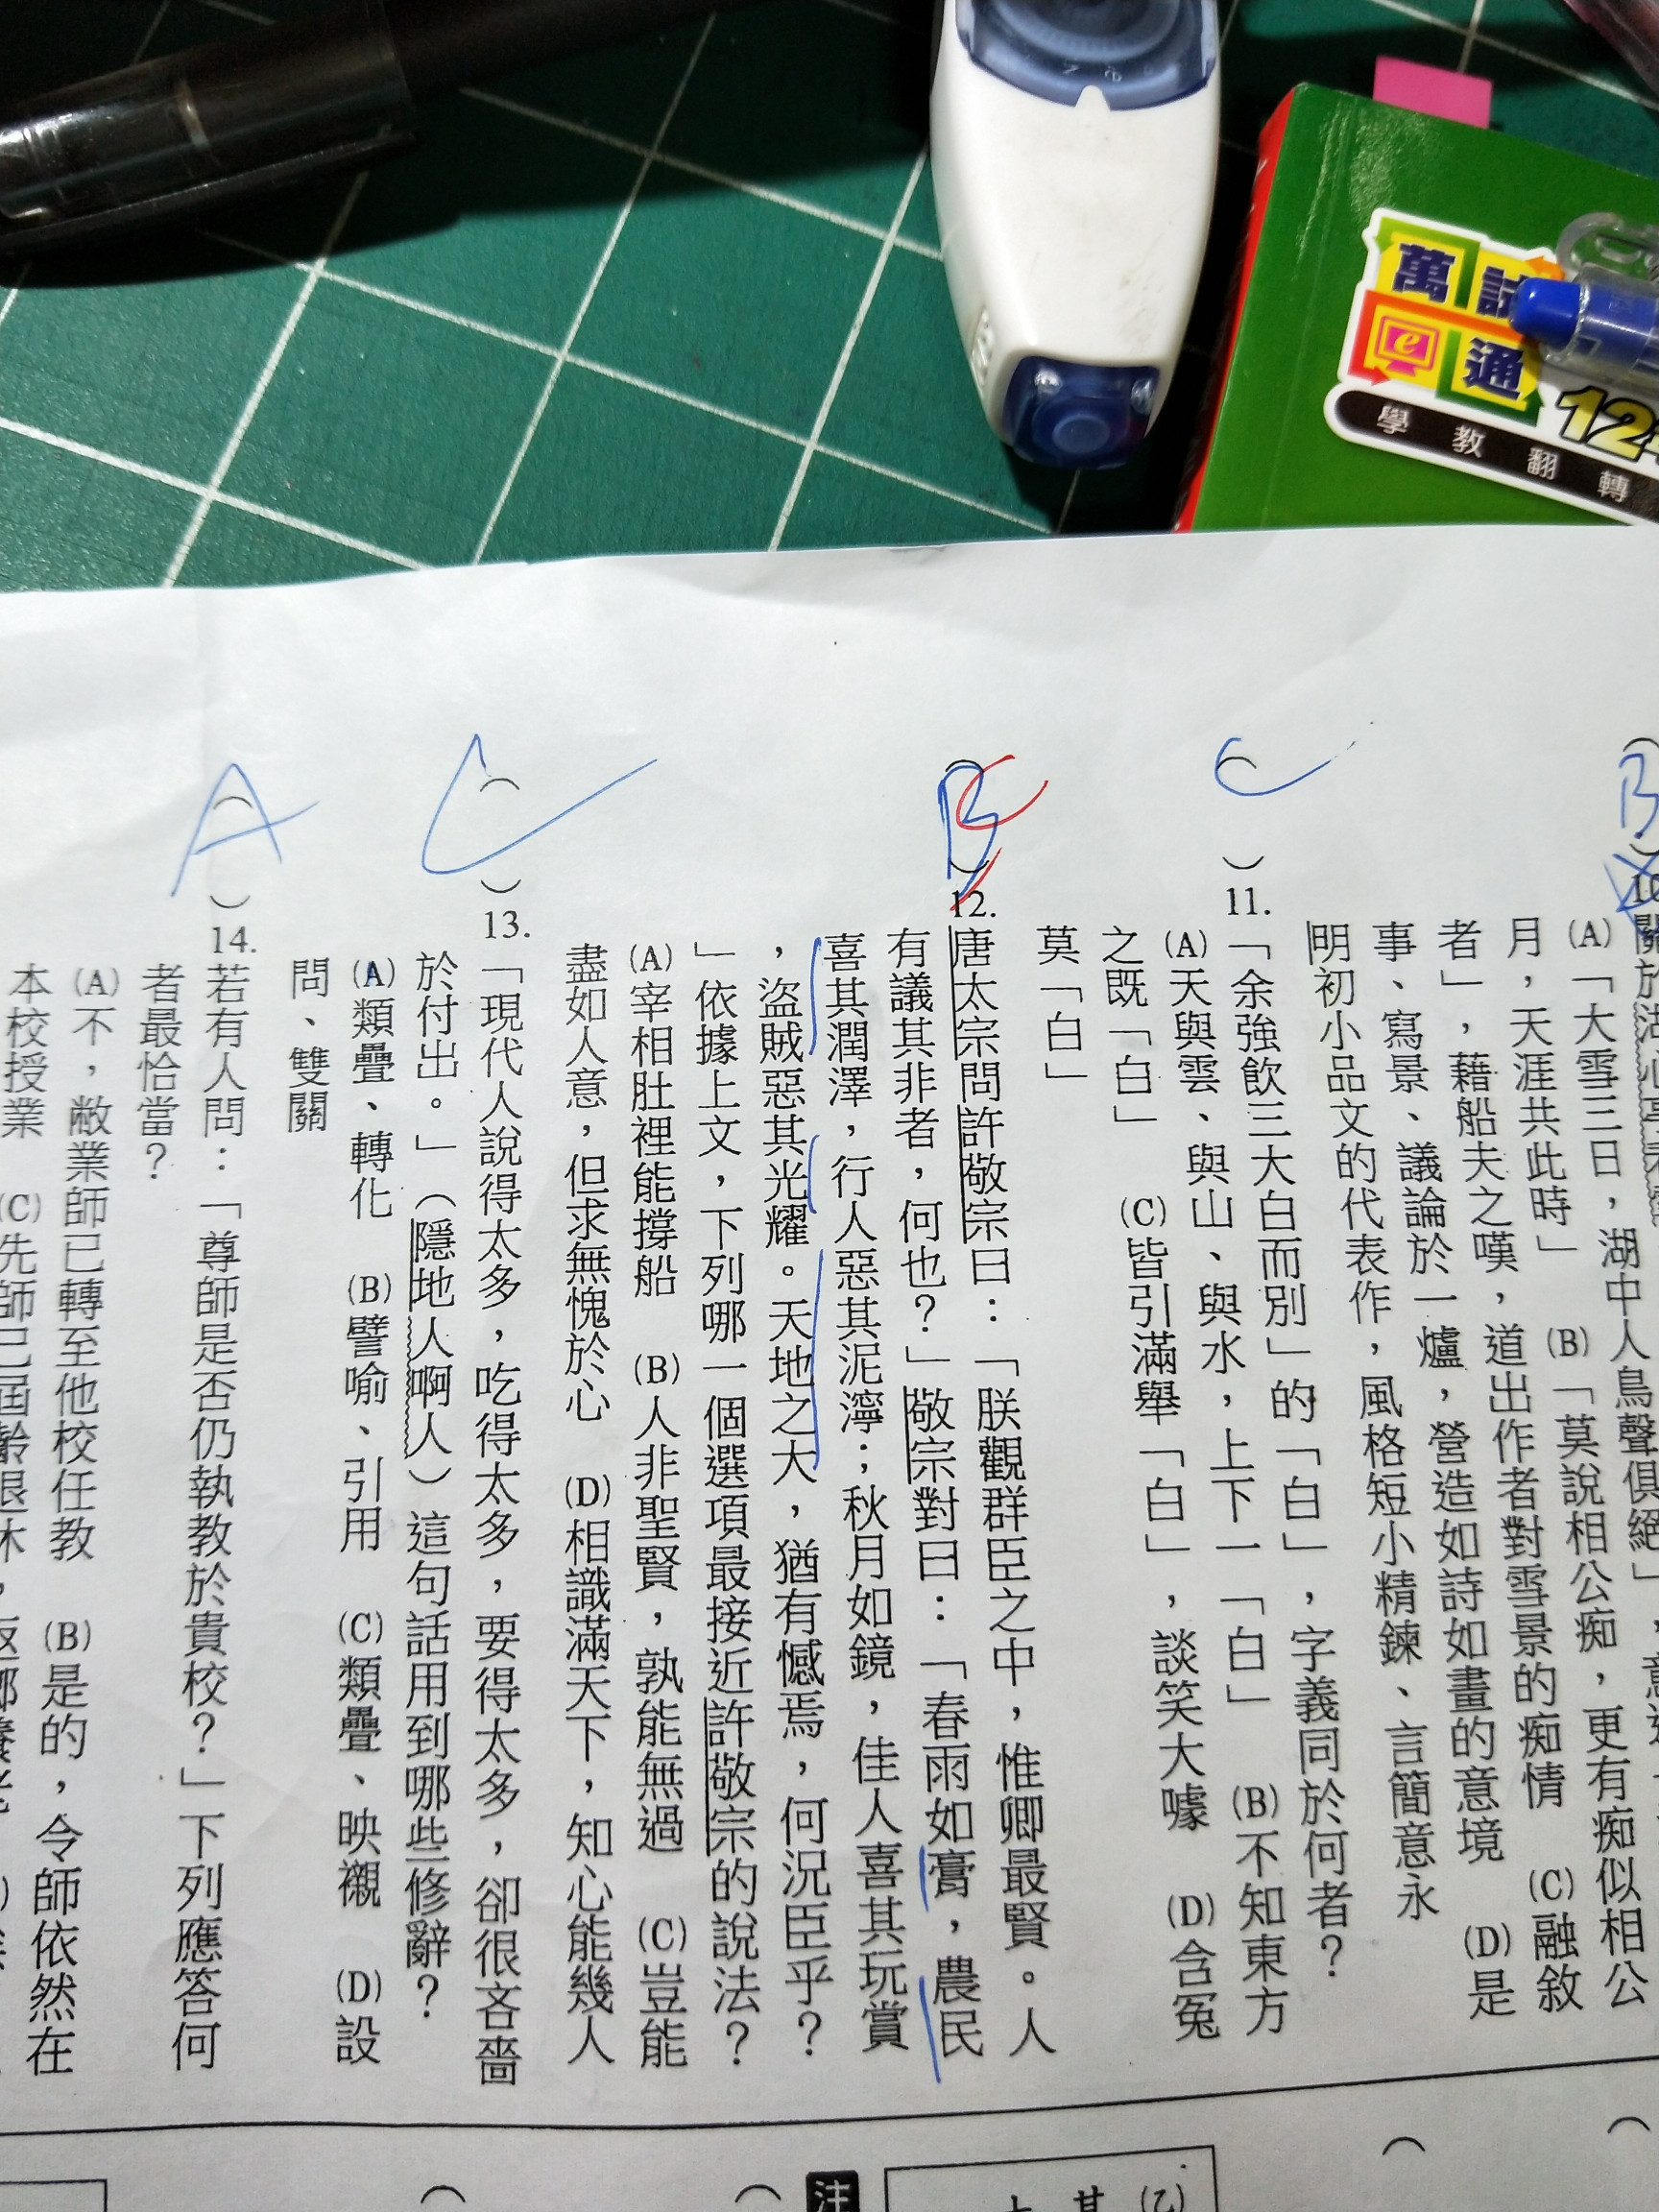 萬試
e通
12
學教翻轉
B
關於湖心亭
(A)「大雪三日,湖中人鳥聲俱絕」,意
月,天涯共此時」 (B)「莫說相公痴,更有痴似相公
者」,藉船夫之嘆,道出作者對雪景的痴情 (C)融敘
事、寫景、議論於一爐,營造如詩如畫的意境 (D)是
明初小品文的代表作,風格短小精鍊、言簡意永
C
( )11.「余強飲三大白而別」的「白」,字義同於何者?
(A)天與雲、與山、與水,上下一「白」 (B)不知東方
之既「白」 (C)皆引滿舉「白」,談笑大噱 (D)含冤
莫「白」
B C
( )12.唐太宗問許敬宗曰:「朕觀群臣之中,惟卿最賢。人
有議其非者,何也?」敬宗對曰:「春雨如膏,農民
喜其潤澤,行人惡其泥濘;秋月如鏡,佳人喜其玩賞
,盜賊惡其光耀。天地之大,猶有憾焉,何況臣乎?
」依據上文,下列哪一個選項最接近許敬宗的說法?
(A)宰相肚裡能撐船 (B)人非聖賢,孰能無過 (C)豈能
盡如人意,但求無愧於心 (D)相識滿天下,知心能幾人
C
( )13.「現代人說得太多,吃得太多,要得太多,卻很吝嗇
於付出。」(隱地人啊人)這句話用到哪些修辭?
(A)類疊、轉化 (B)譬喻、引用 (C)類疊、映襯 (D)設
問、雙關
A
( )14.若有人問:「尊師是否仍執教於貴校?」下列應答何
者最恰當?
(A)不,敝業師已轉至他校任教 (B)是的,令師依然在
本校授業 (C)先師已屆齡退休,返鄉養老
注
(乙)
其